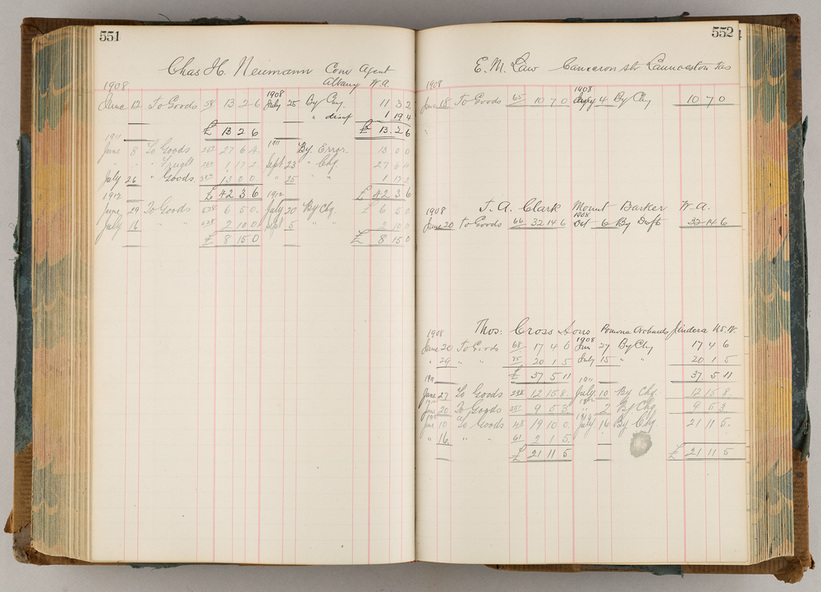 551
Chas H. Neumann Com Agent
Albany W.A.
1908 1908
June 12 To Goods 13 2 6 July 25 By Chq 11 3 2
" disct 1 19 4
£ 13 2 6 £ 13. 2. 6
1911 1911
June 8 To Goods 27 6 4 By Error 13 0 0
" " Frught 1 17 2 Sept 23 " Chq 27 6 4
July 26 " Goods 13 0 0 " 25 " " 1 17 2
£ 42 3 6 £ 42. 3. 6
1912 1912
June 29 To Goods 6 5 0 July 20 By Chq £ 6 5 0
July 16 " 2 10 0 Sept 5 " 2 10 0
£ 8 15 0 £ 8 15 0
552
E. M. Law Cameron str Launceston Tas
1908 1908
June 18 To Goods 65 10 7 0 4 By Chq 10 7 0
T. A. Clark Mount Barker W. A.
1908 1908
June 20 To Goods 66 32 14 6 Oct 6 By Dft 32 14 6
Thos: Cross & Sons Pomona Orchards Jindera N.S.W.
1908 1908
June 20 To Goods 68 17 4 6 Jun 27 By Chq 17 4 6
" 29 " " 75 20 1 5 July 15 " " 20 1 5
£ 37 5 11 37 5 11
1911 1911
June 27 To Goods 12 15 8. July 10 By Chq 12 15 8.
20 To Goods 9 5 3 2 By Chq 9 5 3
1913
10 To Goods 19 10 0 July 16 By Chq 21 11 5.
" 16 " " 61 2 1 5.
£ 21 11 5 £ 21 11 5